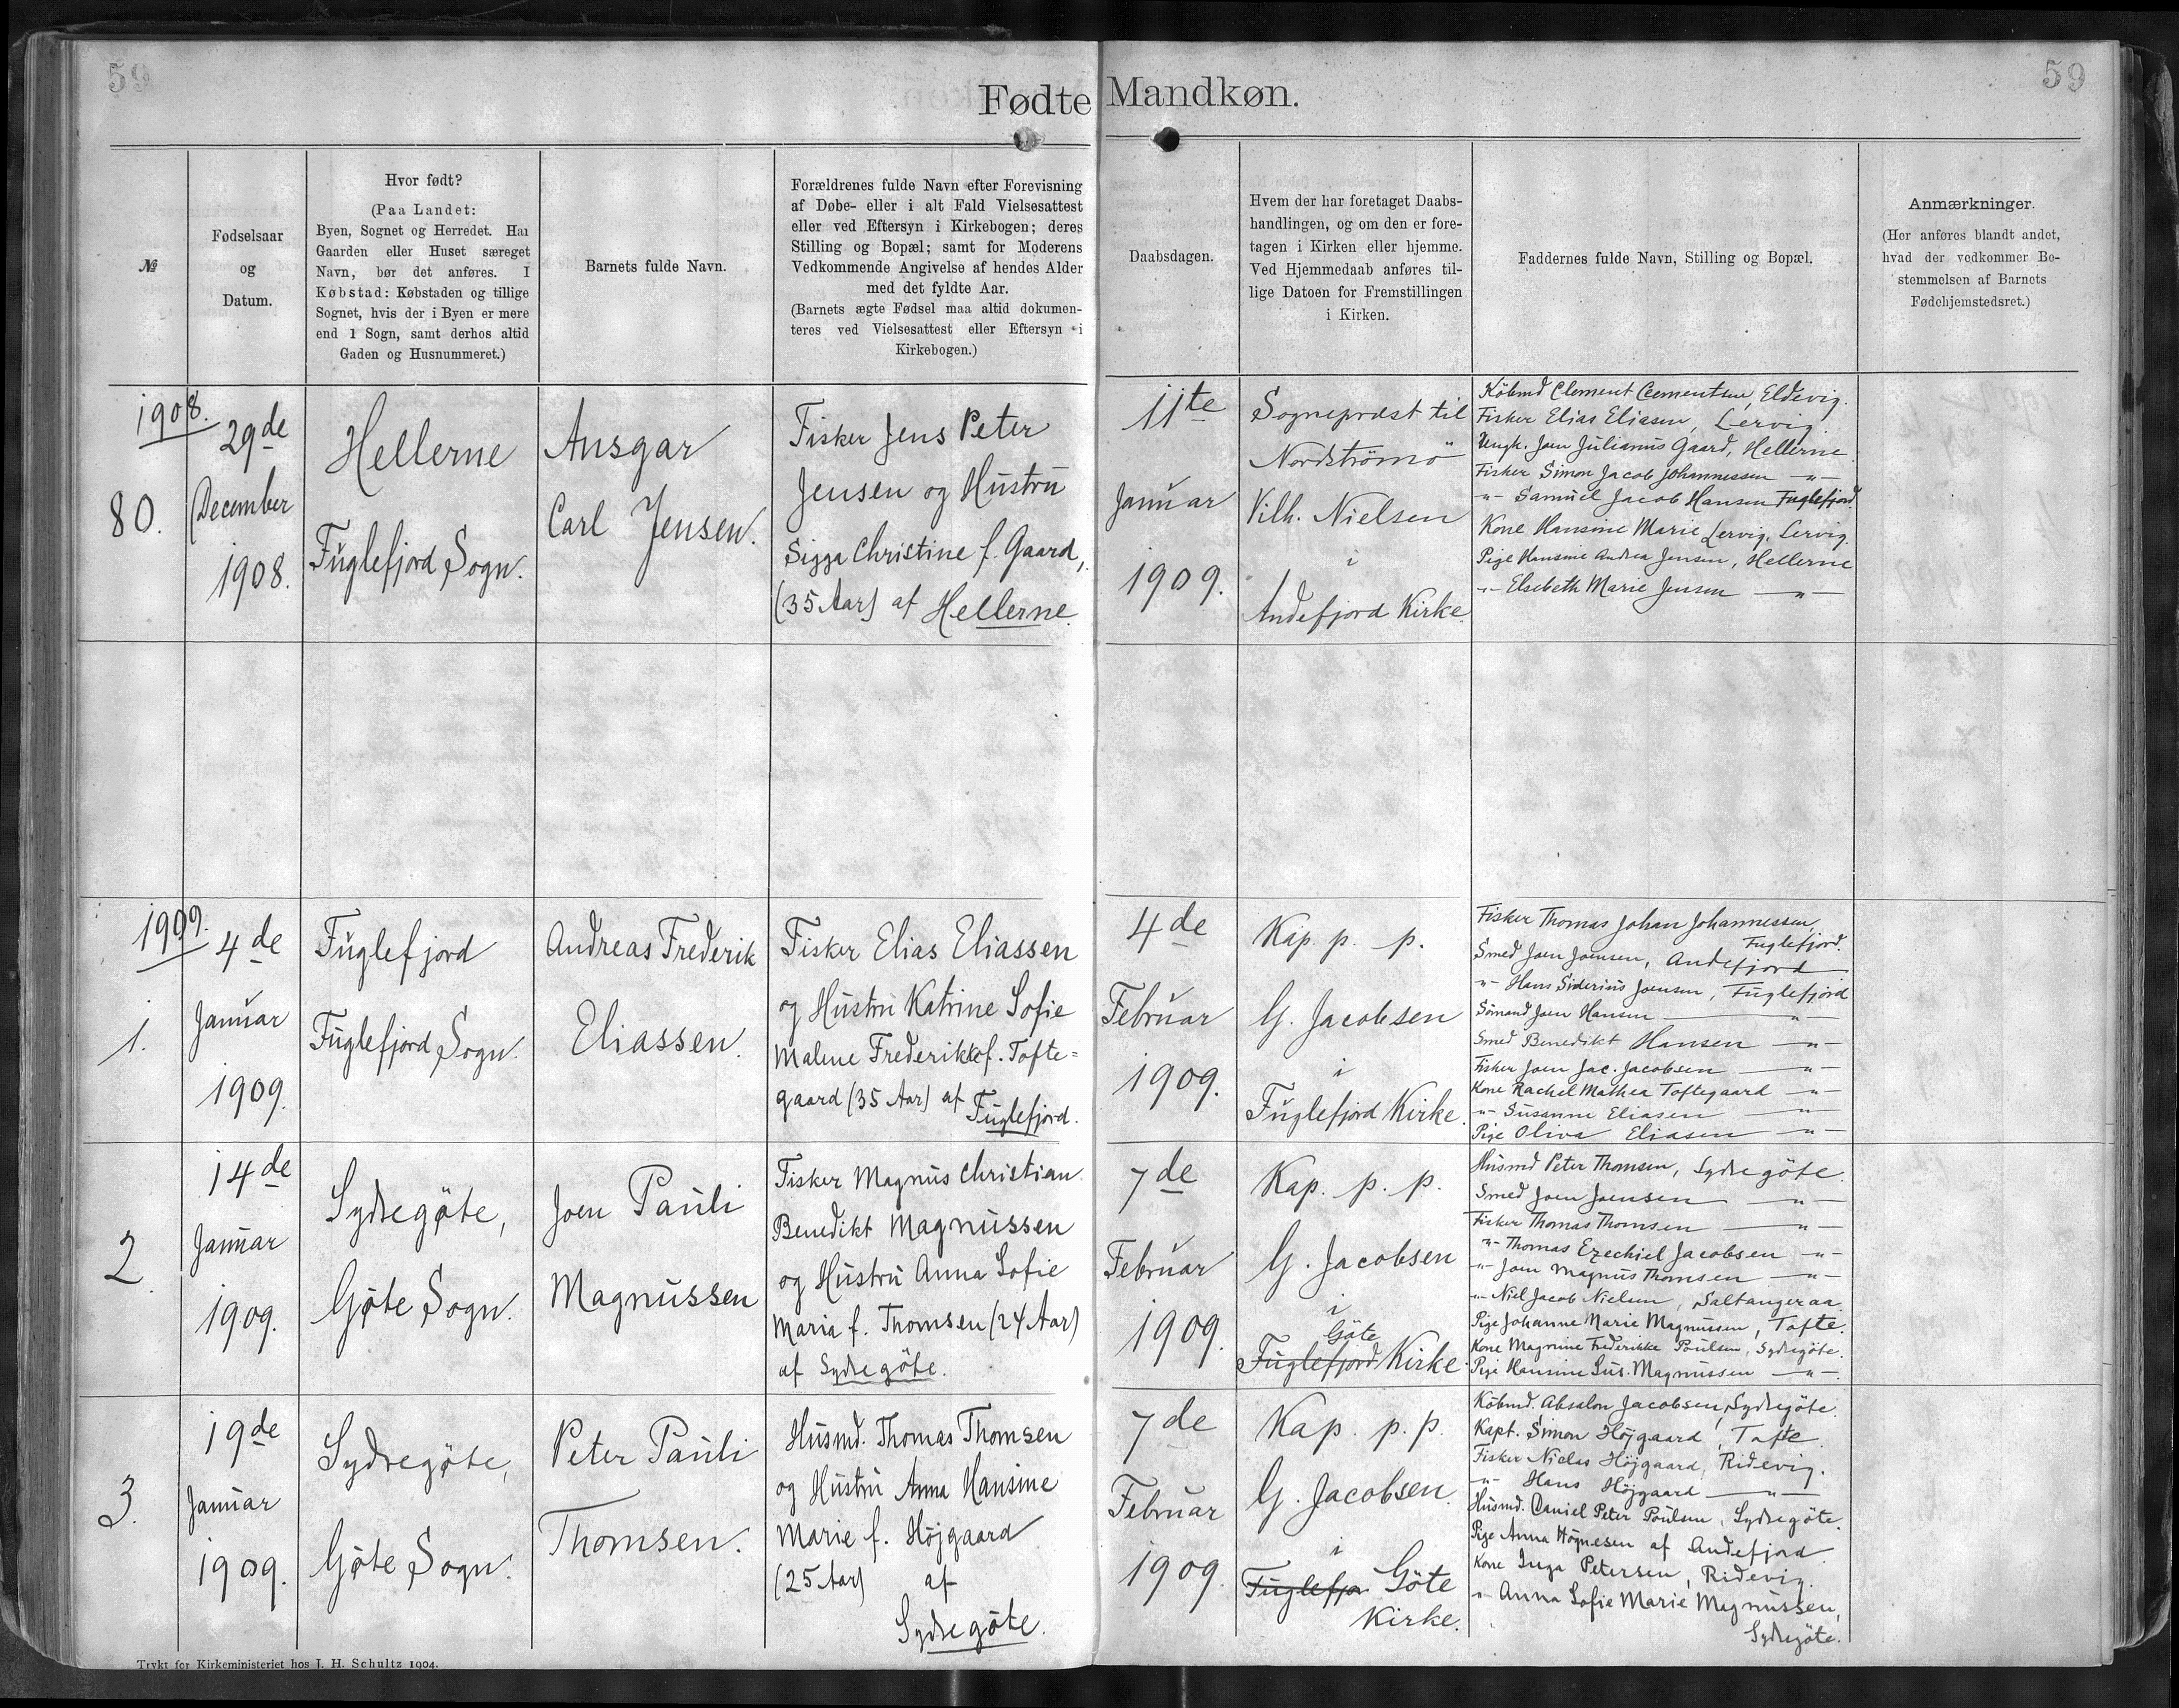 59
59
Fødte Mandkøn.
№
Fødselsaar
og
Datum.
Hvor født?
(Paa Landet:
Byen, Sognet og Herredet. Har
Gaarden eller Huset særeget
Navn, bør det anføres. I
Købstad: Købstaden og tillige
Sognet, hvis der i Byen er mere
end 1 Sogn, samt derhos altid
Gaden og Husnummeret.)
Barnets fulde Navn.
Forældrenes fulde Navn efter Forevisning
af Døbe- eller i alt Fald Vielsesattest
eller ved Eftersyn i Kirkebogen; deres
Stilling og Bopæl; samt for Moderens
Vedkommende Angivelse af hendes Alder
med det fyldte Aar.
(Barnets ægte Fødsel maa altid dokumen-
teres ved Vielsesattest eller Eftersyn i
Kirkebogen.)
Daabsdagen.
Hvem der har foretaget Daabs-
handlingen, og om den er fore-
tagen i Kirken eller hjemme.
Ved Hjemmedaab anføres til-
lige Datoen for Fremstillingen
i Kirken.
Faddernes fulde Navn, Stilling og Bopæl.
Anmærkninger.
(Her anføres blandt andet,
hvad der vedkommer Be-
stemmelsen af Barnets
Fødehjemstedsret.)
1908.
80.
29de
December
1908.
Hellerne
Fuglefjord Sogn.
Ansgar
Carl Jensen.
Fisker Jens Peter
Jensen og Hustru
Sigga Christine f. Gaard,
(35 Aar) af Hellerne.
11te
Januar
1909.
Sognepræst til
Nordströmö
Vilh. Nielsen
i
Andefjord Kirke.
Købmd Clement Clementsen, Eldevig.
Fisker Elias Eliasen, Lervig.
Ungk. Joen Julianus Gaard, Hellerne
Fisker Simon Jacob Johannessen -"-
-"- Samuel Jacob Hansen Fuglefjord.
Kone Hansine Marie Lervig, Lervig.
Pige Hansine Andrea Jensen, Hellerne
-"- Elsebeth Marie Jensen -"-
1909.
1.
4de
Januar
1909.
Fuglefjord
Fuglefjord Sogn.
Andreas Frederik
Eliassen.
Fisker Elias Eliassen
og Hustru Katrine Sofie
Malene Frederikke f. Tofte=
gaard (35 Aar) af
Fuglefjord.
4de
Februar
1909.
Kap. p. p.
G. Jacobsen
i
Fuglefjord Kirke.
Fisker Thomas Johan Johannessen,
Fuglefjord.
Smed Joen Joensen, Andefjord
-"- Hans Siderius Joensen, Fuglefjord
Sömand Joen Hansen -"-
Smed Benedikt Hansen -"-
Fisker Joen Jac. Jacobsen -"-
Kone Rachel Mathea Toftegaard -"-
-"- Susanne Eliasen -"-
Pige Oliva Eliasen -"-
2
14de
Januar
1909.
Sydregøte,
Gøte Sogn.
Joen Pauli
Magnussen
Fisker Magnus Christian
Benedikt Magnussen
og Hustru Anna Sofie
Maria f. Thomsen (24 Aar)
af Sydregöte.
7de
Februar
1909.
Kap. p. p.
G. Jacobsen
i
Göte
Fuglefjord Kirke.
Husmd Peter Thomsen, Sydregöte.
Smed Joen Joensen -"-
Fisker Thomas Thomsen -"-
-"- Thomas Ezechiel Jacobsen -"-
-"- Joen Magnus Thomsen -"-
-"- Niel Jacob Nielsen, Saltangeraa.
Pige Johanne Marie Magnussen, Tofte.
Kone Magnine Frederikke Poulsen, Sydregöte.
Pige Hansine Sus. Magnussen -"-
3.
19de
Januar
1909.
Sydregøte,
Gøte Sogn.
Peter Pauli
Thomsen.
Husmd. Thomas Thomsen
og Hustru Anna Hansine
Marie f. Höjgaard
(25 Aar) af
Sydregöte.
7de
Februar
1909.
Kap. p. p.
G. Jacobsen.
i
Fuglefjor Göte
Kirke.
Købmd. Absalon Jacobsen, Sydregöte.
Kapt. Simon Höjgaard, Tofte.
Fisker Niclas Höjgaard, Ridevig.
-"- Hans Höjgaard -"-
Husmd. Daniel Peter Poulsen, Sydregöte.
Pige Anna Högnesen af Andefjord.
Kone Inga Petersen, Ridevig.
-"- Anna Sofie Marie Magnussen,
Sydregöte.
Trykt for Kirkeministeriet hos J. H. Schultz 1904.